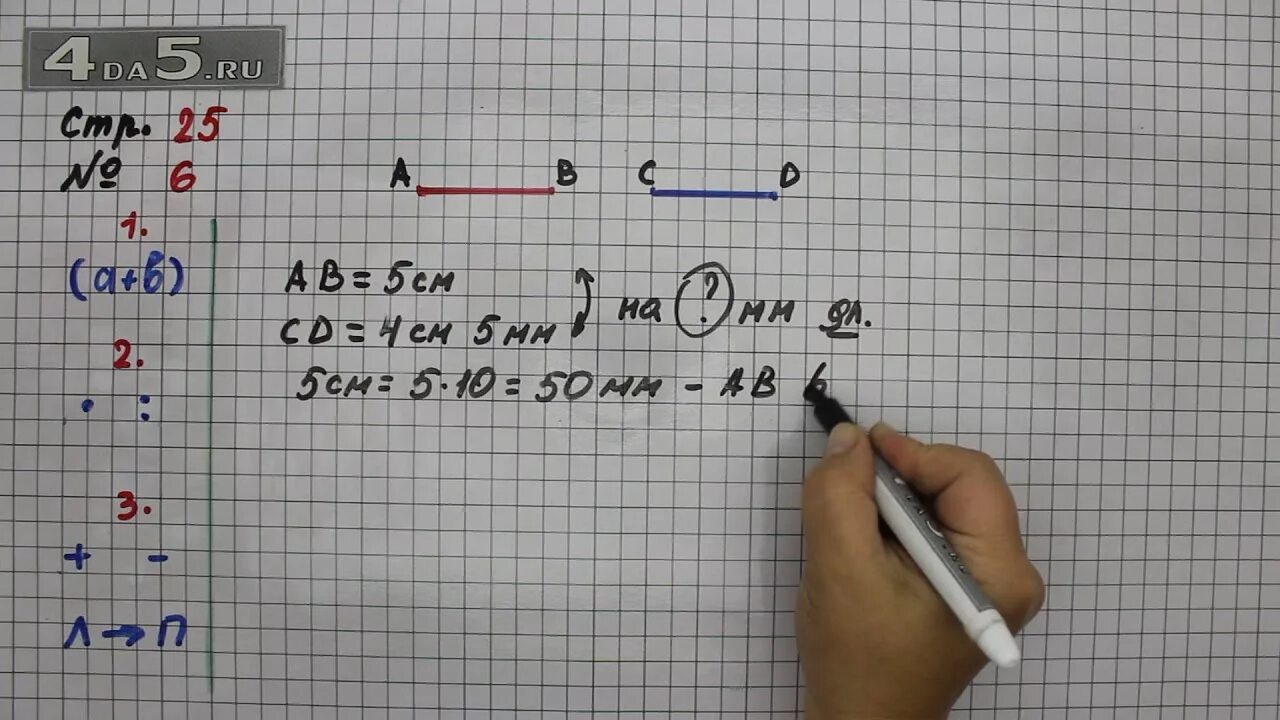 4DA5.RU
Стр. 25
№ 6
1.
(а+в)
2.
· :
3.
+ -
Л → П
A B C D
AB = 5см
CD = 4см 5мм
на ? мм дл.
5см = 5·10 = 50мм - AB